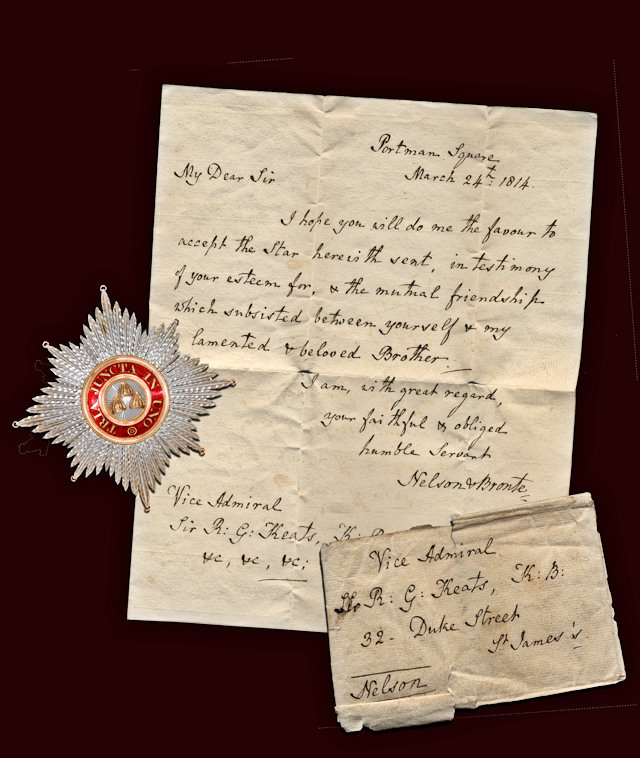 Portman Square
March 24th: 1814.
My Dear Sir
I hope you will do me the favour to
accept the Star herewith sent, in testimony
of your esteem for, & the mutual friendship
which subsisted between yourself & my
lamented & beloved Brother.
I am, with great regard,
your faithful & obliged
humble Servant
Nelson & Bronte
Vice Admiral
Sir R: G: Keats, K:
&c, &c, &c;
TRIA JUNCTA IN UNO
Vice Admiral
Sir R: G: Keats, K: B:
32- Duke Street
St James's.
Nelson